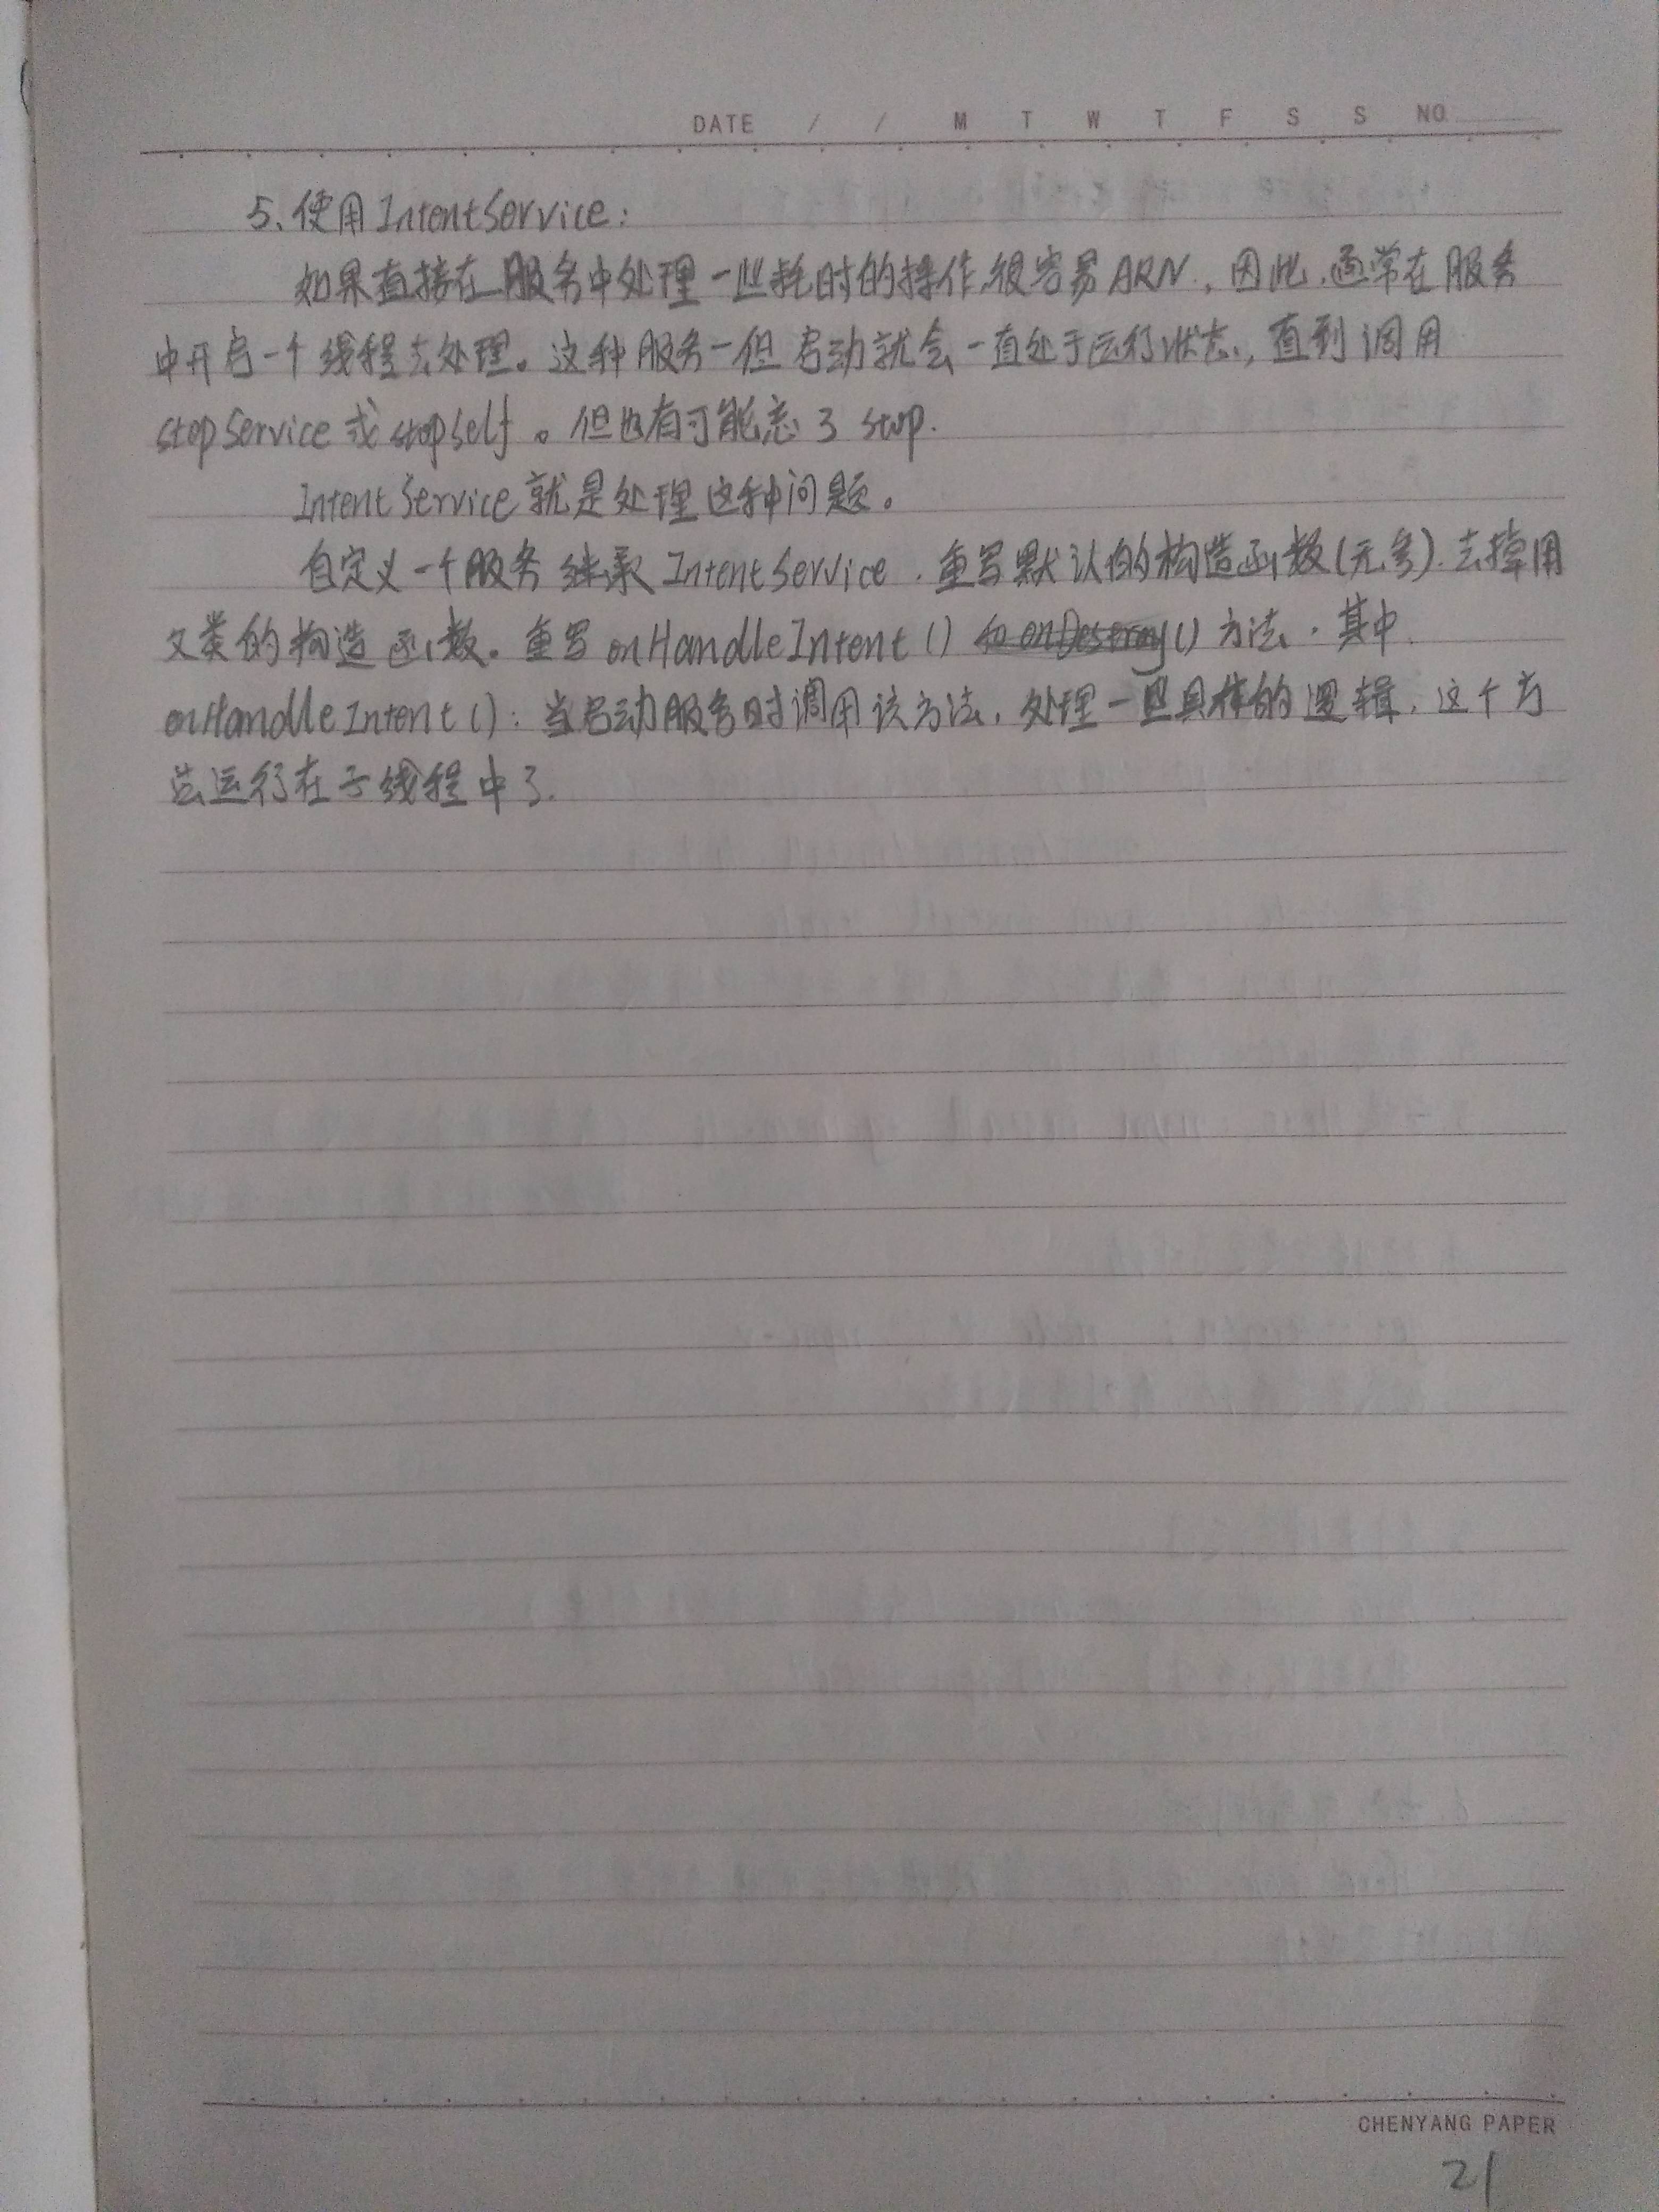 DATE / / M T W T F S S NO.
5、使用IntentService:
如果直接在服务中处理一些耗时的操作,很容易ARN,因此,通常在服务
中开启一个线程去处理。这种服务一但启动就会一直处于运行状态,直到调用
stopService或stopSelf。但也有可能忘了stop.
IntentService就是处理这种问题。
自定义一个服务继承IntentService.重写默认的构造函数(无参).去掉用
父类的构造函数。重写onHandleIntent()和onDestroy()方法.其中.
onHandleIntent():当启动服务时调用该方法,处理一些具体的逻辑,这个方
法运行在子线程中了.
CHENYANG PAPER
21